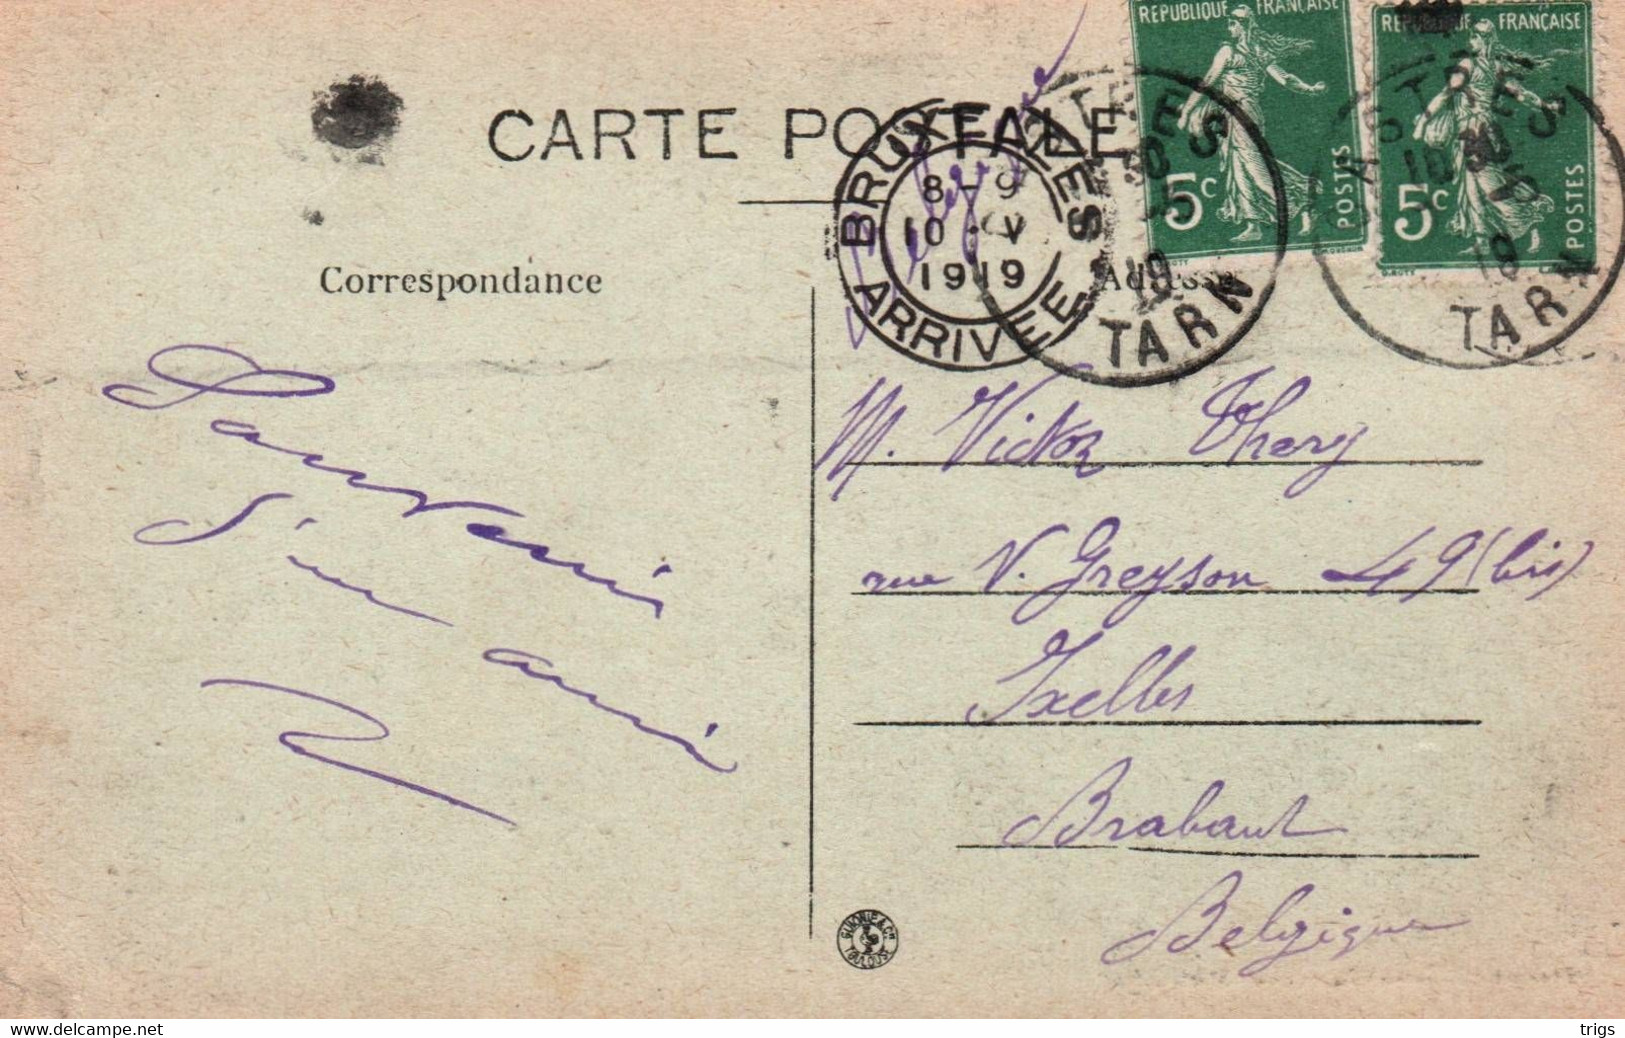 REPUBLIQUE FRANÇAISE
REPUBLIQUE FRANÇAISE
CARTE POSTALE
5c POSTES
5c POSTES
BRUXELLES
8-9
10 V
1919
ARRIVEE
CASTRES
TARN
CASTRES
TARN
Correspondance
Adresse
Souvenir
d'un ami
M. Victor Thery
rue V. Greyson 49 (bis)
Ixelles
Brabant
Belgique
TOULOUSE
www.delcampe.net
trigs